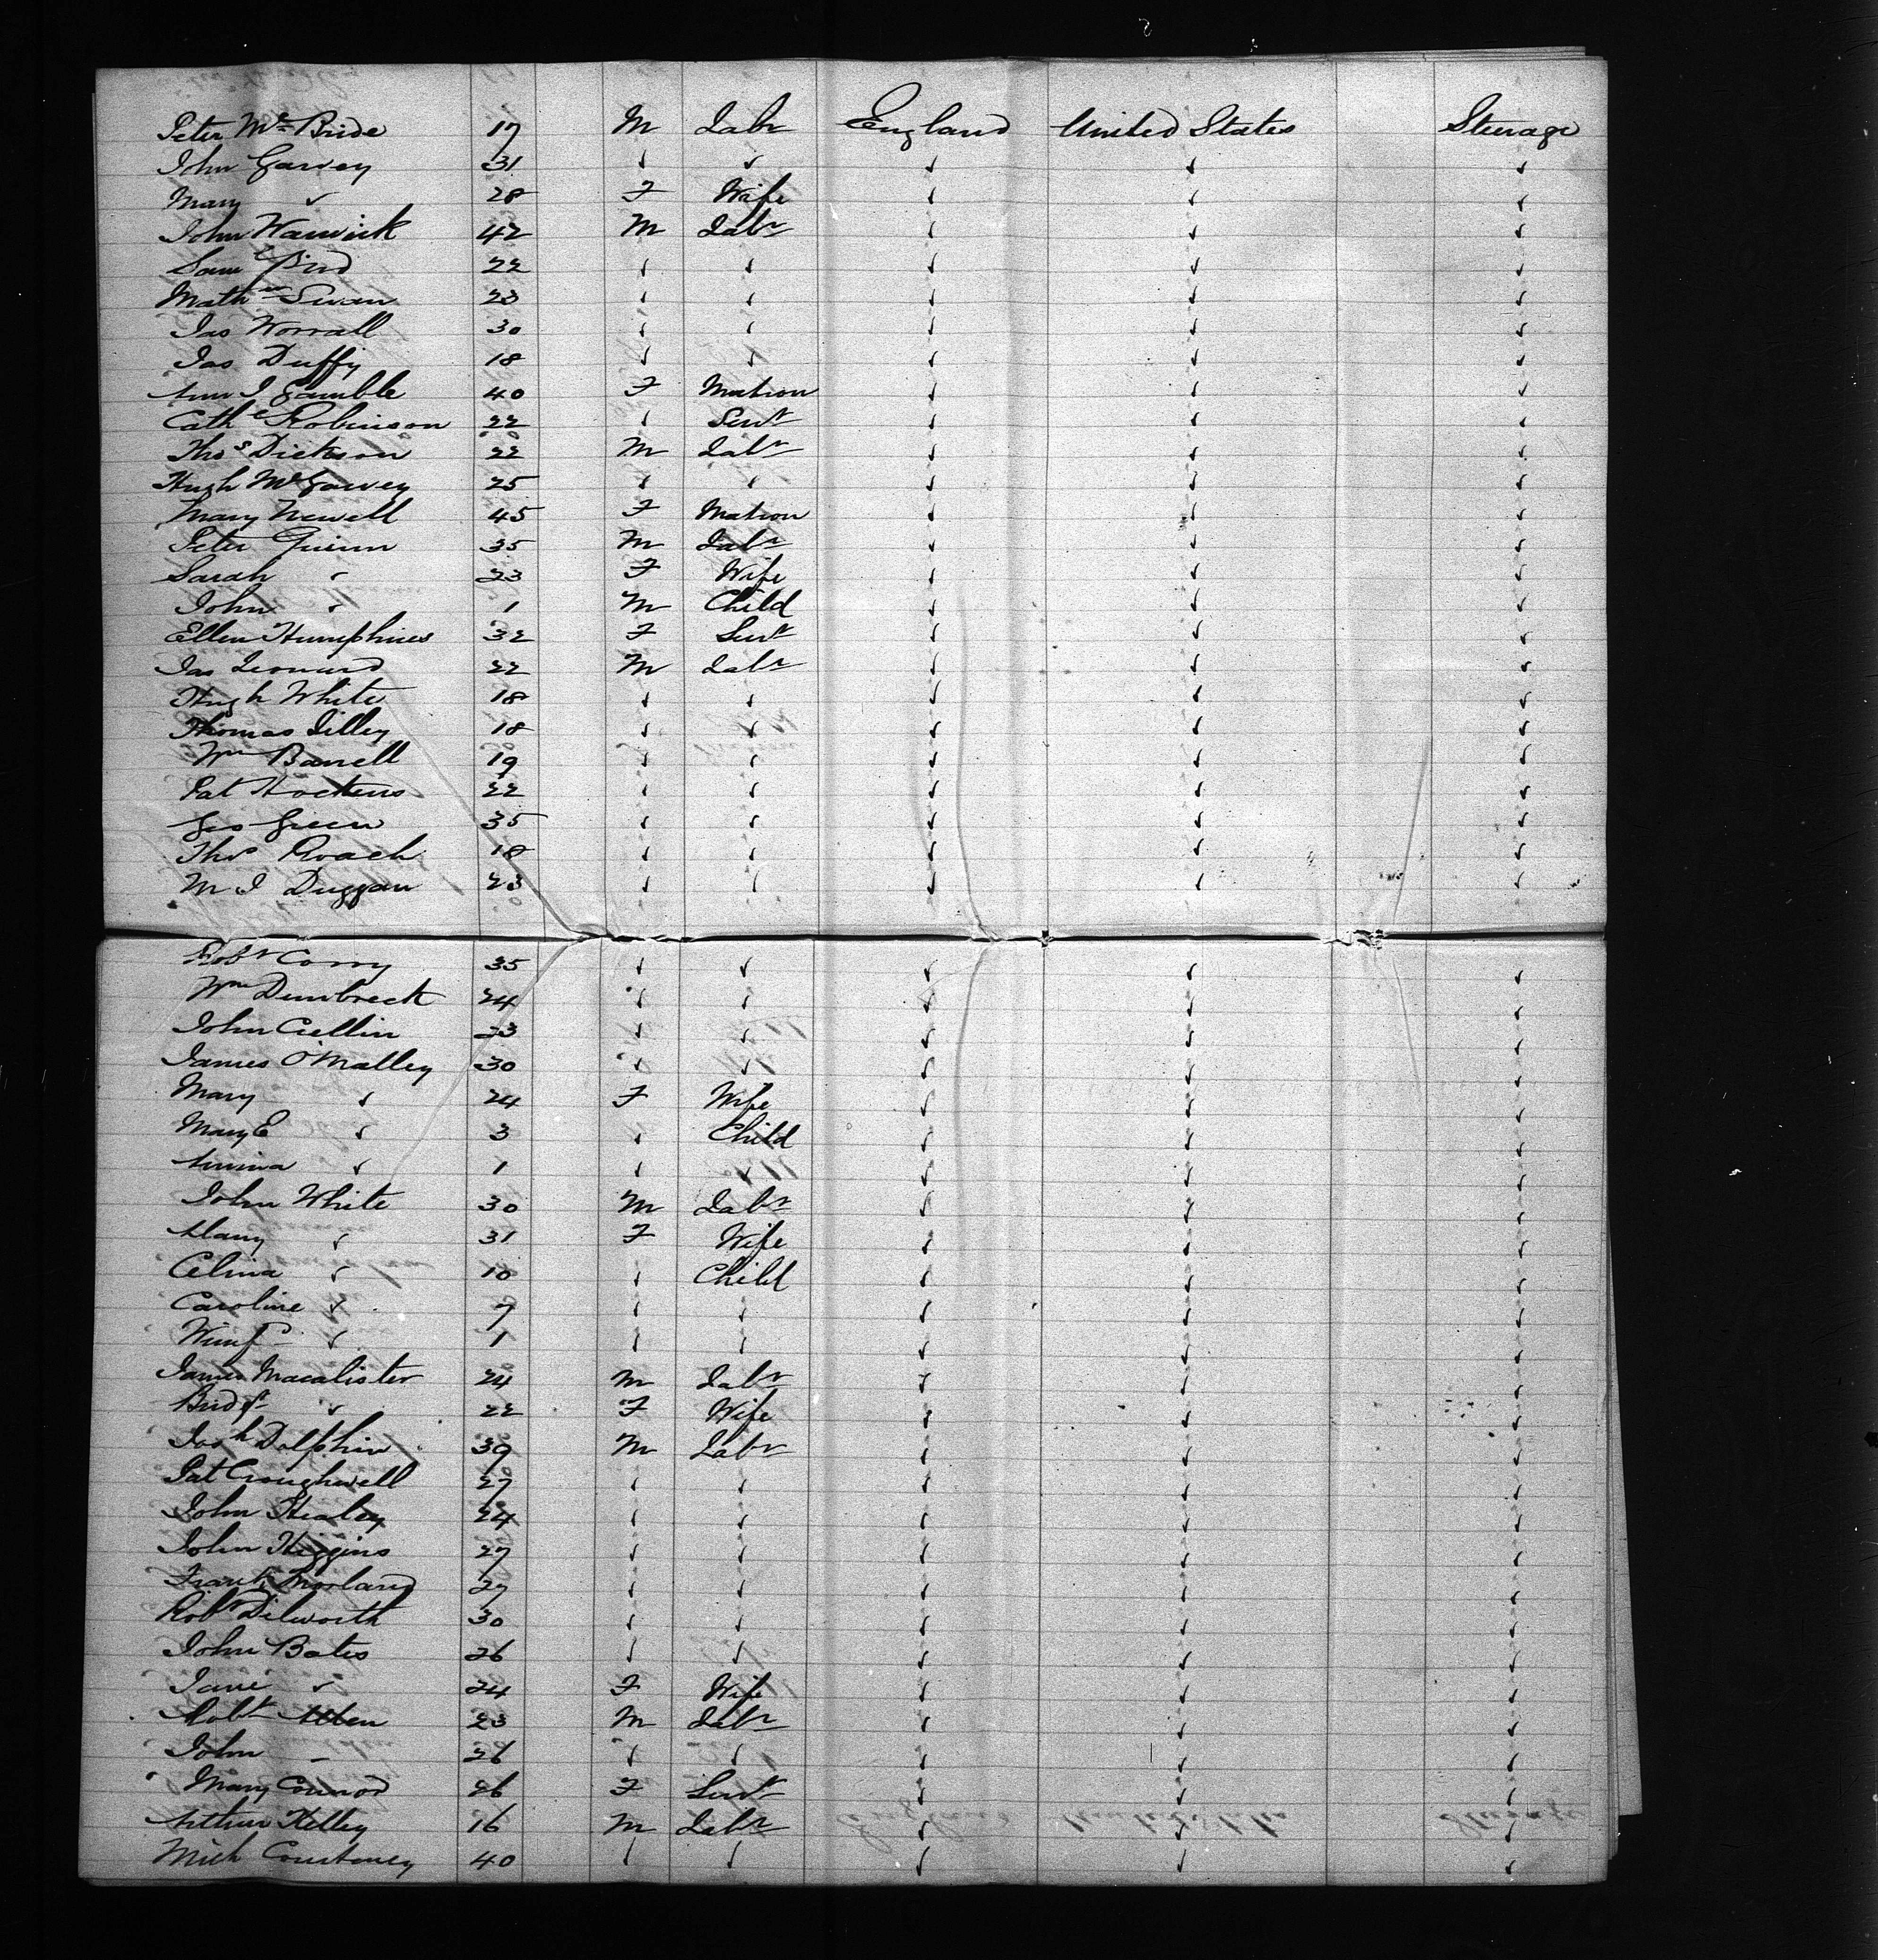 Peter Mc Bride 17 M Labr England United States Steerage
John Garvey 31 ✓ ✓ ✓ ✓ ✓
Mary ✓ 28 F Wife ✓ ✓ ✓
John Warwick 42 M Labr ✓ ✓ ✓
Saml Bird 22 ✓ ✓ ✓ ✓ ✓
Mathw Swan 23 ✓ ✓ ✓ ✓ ✓
Jas Worrall 30 ✓ ✓ ✓ ✓ ✓
Jas Duffy 18 ✓ ✓ ✓ ✓ ✓
Ann J Gamble 40 F Matron ✓ ✓ ✓
Cathe Robinson 22 ✓ Servt ✓ ✓ ✓
Thos Dickson 22 M Labr ✓ ✓ ✓
Hugh McGarvey 25 ✓ ✓ ✓ ✓ ✓
Mary Newell 45 F Matron ✓ ✓ ✓
Peter Quinn 35 M Labr ✓ ✓ ✓
Sarah ✓ 23 F Wife ✓ ✓ ✓
John ✓ 1 M Child ✓ ✓ ✓
Ellen Humphries 32 F Servt ✓ ✓ ✓
Jas Leonard 22 M Labr ✓ ✓ ✓
Hugh White 18 ✓ ✓ ✓ ✓ ✓
Thomas Lilley 18 ✓ ✓ ✓ ✓ ✓
Wm Barrell 19 ✓ ✓ ✓ ✓ ✓
Pat 22 ✓ ✓ ✓ ✓ ✓
Geo Green 35 ✓ ✓ ✓ ✓ ✓
Thos Roach 18 ✓ ✓ ✓ ✓ ✓
M J Duggan 23 ✓ ✓ ✓ ✓ ✓
Robt Corry 35 ✓ ✓ ✓ ✓ ✓
Wm Dunbreck 24 ✓ ✓ ✓ ✓ ✓
John Crellin 23 ✓ ✓ ✓ ✓ ✓
James O'Malley 30 ✓ ✓ ✓ ✓ ✓
Mary ✓ 24 F Wife ✓ ✓ ✓
Mary E ✓ 3 ✓ Child ✓ ✓ ✓
✓ 1 ✓ ✓ ✓ ✓ ✓
John White 30 M Labr ✓ ✓ ✓
Mary ✓ 31 F Wife ✓ ✓ ✓
Celina ✓ 10 ✓ Child ✓ ✓ ✓
Caroline ✓ 7 ✓ ✓ ✓ ✓ ✓
Winfd ✓ 1 ✓ ✓ ✓ ✓ ✓
James Macalister 24 M Labr ✓ ✓ ✓
Bridgt ✓ 22 F Wife ✓ ✓ ✓
Josh Dolphin 39 M Labr ✓ ✓ ✓
Pat Croughwell 27 ✓ ✓ ✓ ✓ ✓
John Healey 24 ✓ ✓ ✓ ✓ ✓
John Higgins 27 ✓ ✓ ✓ ✓ ✓
Frank Morland 27 ✓ ✓ ✓ ✓ ✓
Robt Dilworth 30 ✓ ✓ ✓ ✓ ✓
John Bates 26 ✓ ✓ ✓ ✓ ✓
Jane ✓ 24 F Wife ✓ ✓ ✓
Robt Allen 23 M Labr ✓ ✓ ✓
John – 26 ✓ ✓ ✓ ✓ ✓
Mary Connor 26 F Servt ✓ ✓ ✓
Arthur Kelley 16 M Labr ✓ ✓ ✓
Mich Courtney 40 ✓ ✓ ✓ ✓ ✓